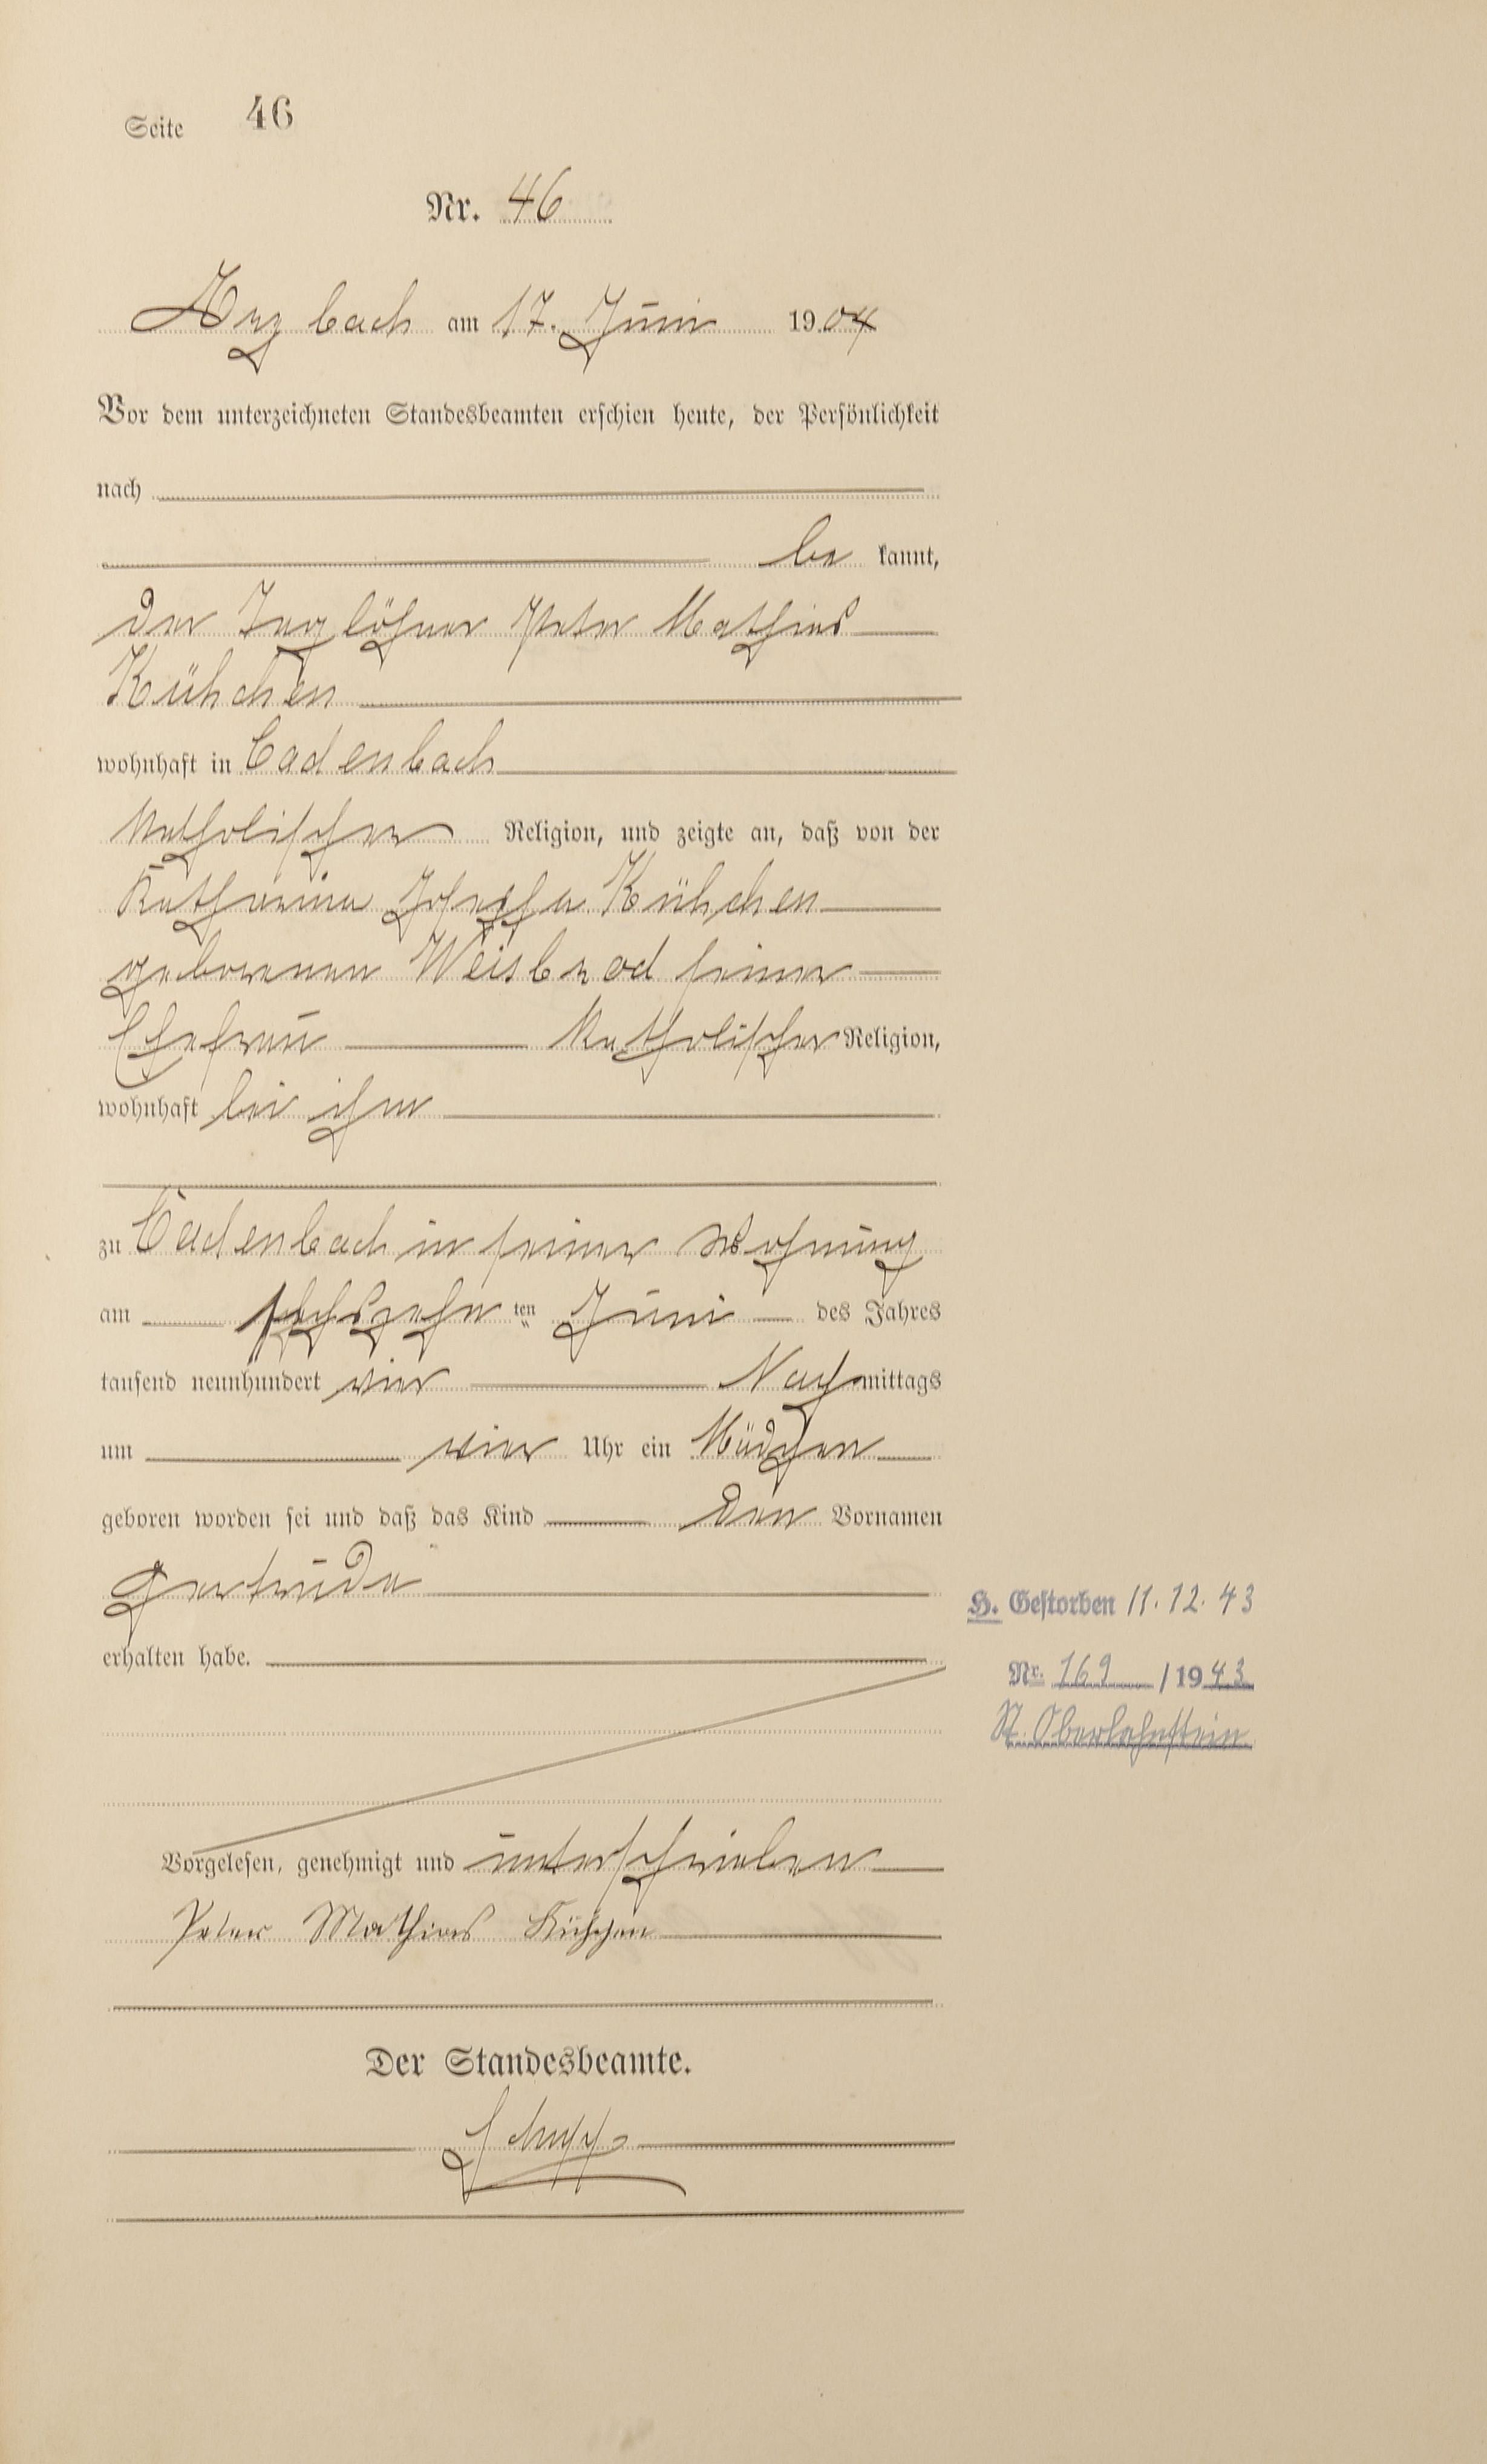 Seite 46
Nr. 46
Arzbach am 17. Juni 1904
Vor dem unterzeichneten Standesbeamten erschien heute, der Persönlichkeit
nach
be kannt,
der Taglöhner Peter Mathias
Kühchen
wohnhaft in Cadenbach
katholischer Religion, und zeigte an, daß von der
Katharina Josefa Kühchen
geborenen Weisbrod seiner
Ehefrau katholischer Religion,
wohnhaft bei ihm
zu Cadenbach in seiner Wohnung
am sechszehn ten Juni des Jahres
tausend neunhundert vier Nachmittags
um vier Uhr ein Mädchen
geboren worden sei und daß das Kind den Vornamen
Gertruda
H. Gestorben 11.12.43
erhalten habe.
Nr. 169 / 1943
St. Oberlahnstein
Vorgelesen, genehmigt und unterschrieben
Peter Mathias Kühchen
Der Standesbeamte.
Schupp